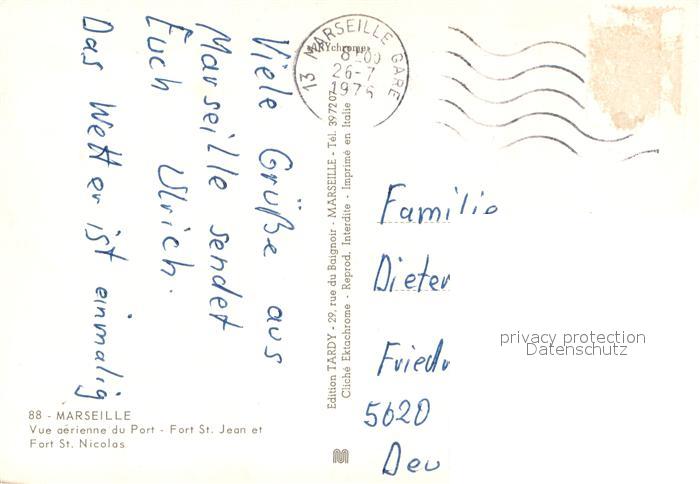 Viele Grüße aus
Marseille sendet
Euch Ulrich.
Das Wetter ist einmalig
88 - MARSEILLE
Vue aérienne du Port - Fort St. Jean et
Fort St. Nicolas
Edition TARDY - 29, rue du Baignoir - MARSEILLE - Tél. 397207
Cliché Ektachrome - Reprod. Interdite - Imprimé en Italie
13 MARSEILLE GARE
8 H 00
26-7
1976
Familie
Dieter
Friedr
5620
Deu
privacy protection
Datenschutz